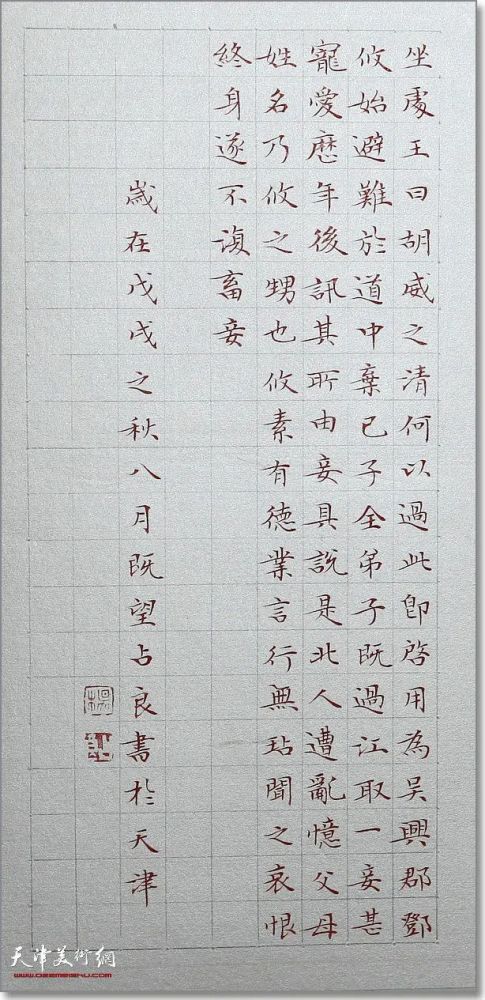 坐處王曰胡威之清何以過此即啓用為吳興郡鄧
攸始避難於道中棄己子全弟子既過江取一妾甚
寵愛歷年後訊其所由妾具說是北人遭亂憶父母
姓名乃攸之甥也攸素有德業言行無玷聞之哀恨
終身遂不復畜妾
歲在戊戌之秋八月既望占良書於天津
天津美術網